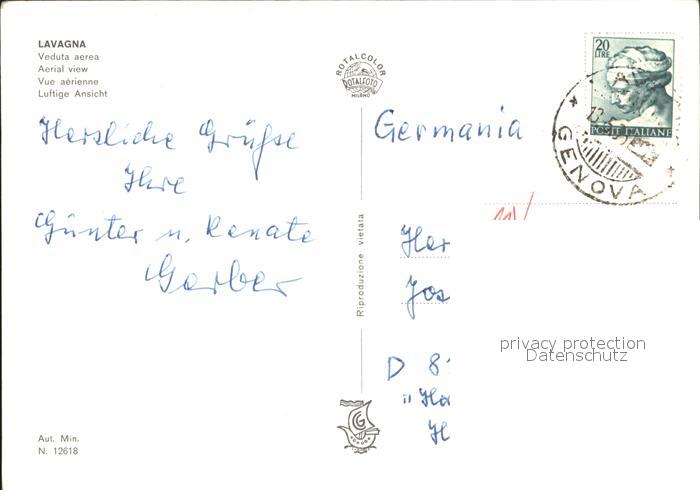 LAVAGNA
Veduta aerea
Aerial view
Vue aérienne
Luftige Ansicht
Herzliche Grüße
Ihre
Günter u. Renate
Gerber
Aut. Min.
N. 12618
ROTALCOLOR
ROTALFOTO
MILANO
Riproduzione vietata
20
LIRE
POSTE ITALIANE
GENOVA
Germania
11/
Her
Jos
privacy protection
Datenschutz
D 8
"Ha
H